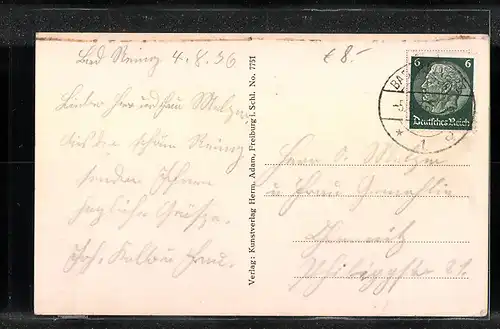 Bad Reinerz 4.8.36
€ 8.-
6 6
Deutsches Reich
BAD
Lieber Herr und Frau Melzer
Aus dem schönen Reinerz
senden Ihnen
herzliche Grüsse
Joh. Kolbe u. Frau.
Verlag: Kunstverlag Herm. Adam, Freiburg i. Schl. No. 7751
Herrn O. Melzer
u. Frau Gemahlin
Chemnitz
Philippstr. 21.